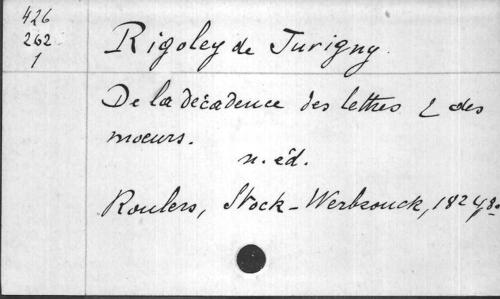 426
262
1
Rigoley de Juvigny.
De la décadence des lettres & des
moeurs.
n. éd.
Roulers, Stock-Werbrouck, 1824, 8o